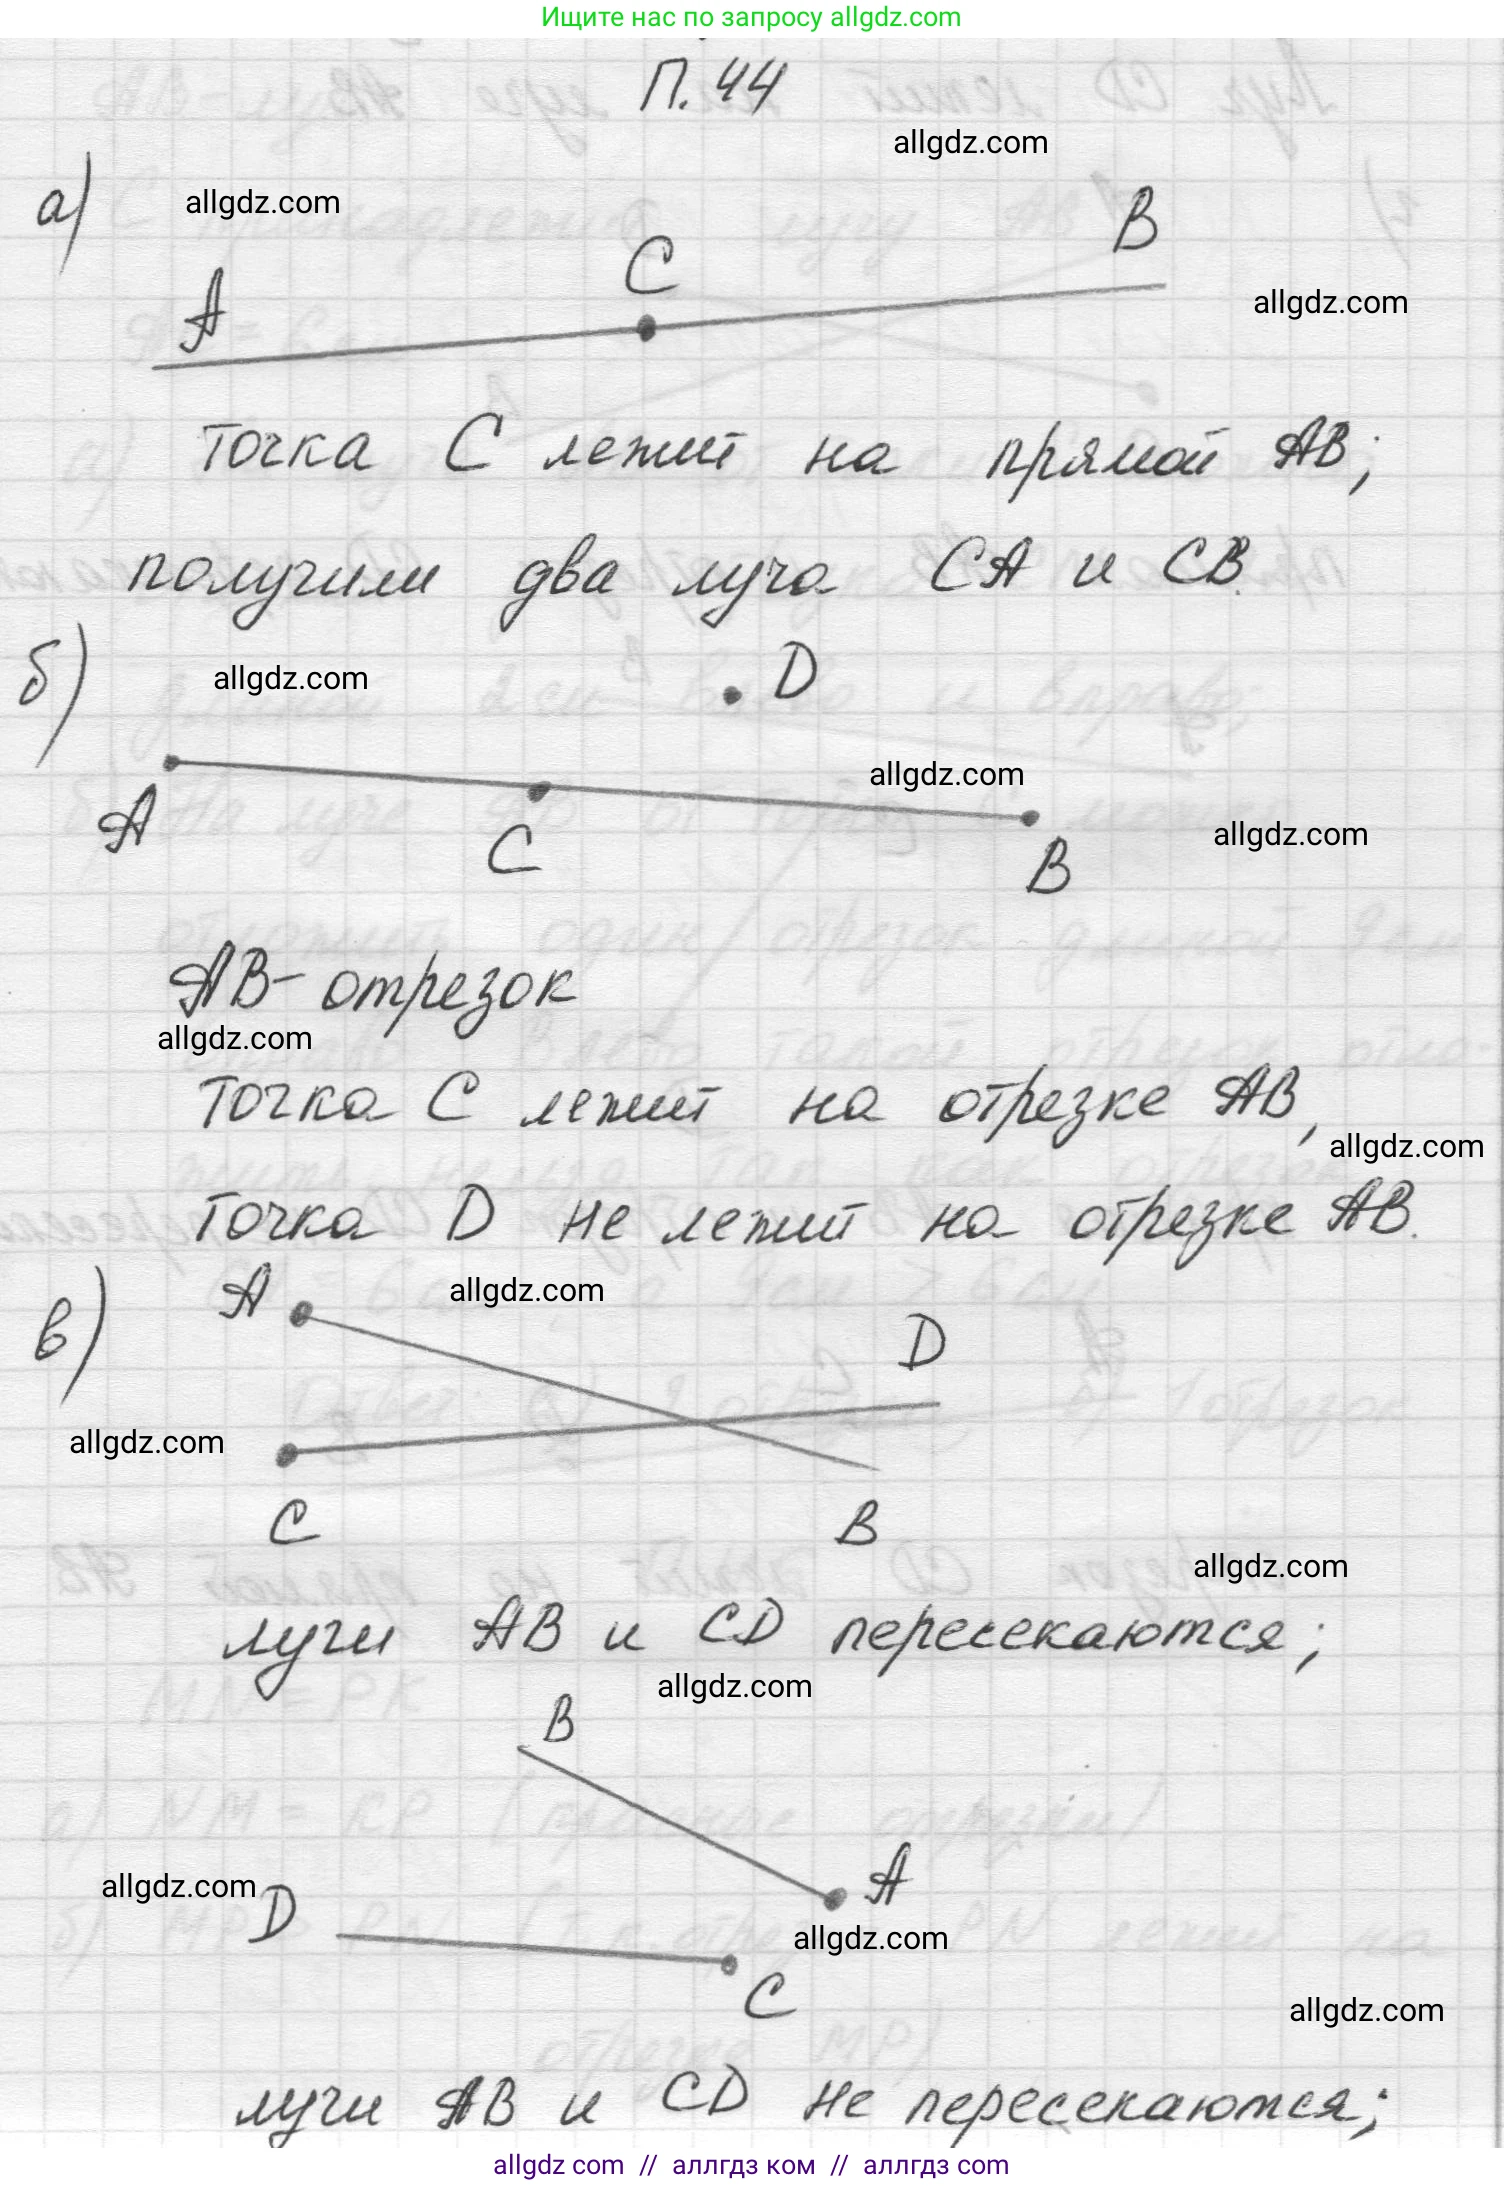 Ищите нас по запросу allgdz.com
П. 44
allgdz.com
а)
allgdz.com
B
C
A
allgdz.com
Точка C лежит на прямой AB;
получили два луча CA и CB.
б)
allgdz.com
D
allgdz.com
A
C
B
allgdz.com
AB - отрезок
allgdz.com
Точка C лежит на отрезке AB,
allgdz.com
Точка D не лежит на отрезке AB.
в)
A
allgdz.com
D
allgdz.com
C
B
allgdz.com
лучи AB и CD пересекаются;
allgdz.com
B
A
allgdz.com
D
allgdz.com
C
allgdz.com
лучи AB и CD не пересекаются;
allgdz com // аллгдз ком // аллгдз com